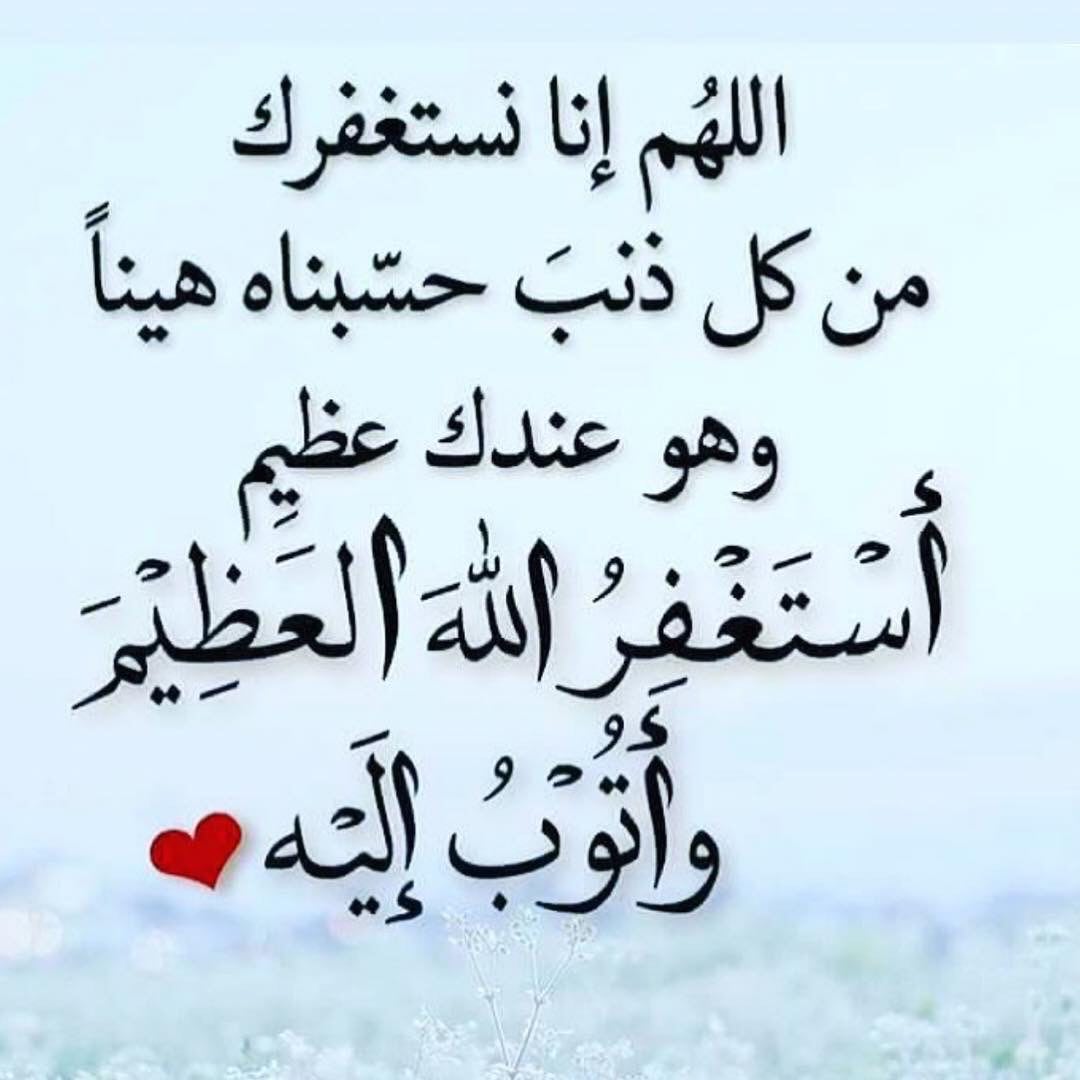 اللهُم إنا نستغفرك
من كل ذنبَ حسّبناه هيناً
وهو عندك عظيِم
أَسْتَغْفِرُ اللهَ العَظِيْمَ
وأَتُوْبُ إِليَْه ❤